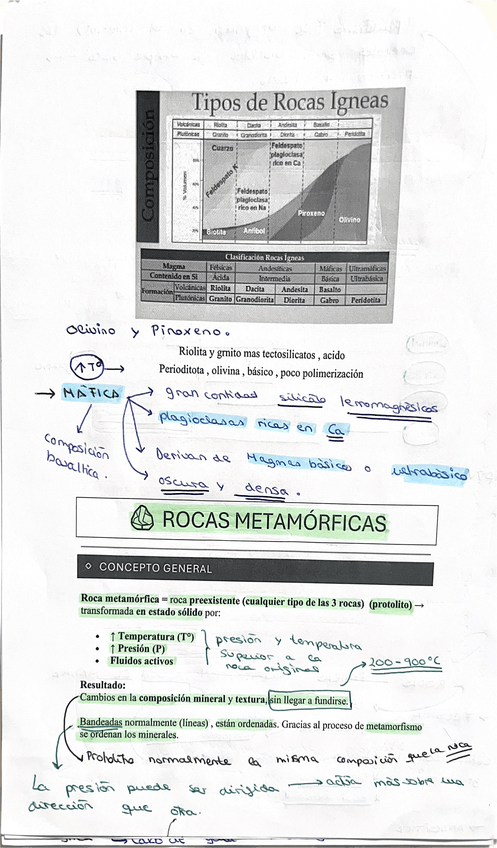 Tipos de Rocas Igneas
Composición
Volcánicas Riolita Dacita Andesita Basalto
Plutónicas Granito Granodiorita Diorita Gabro Peridotita
% Volumen
Cuarzo
Feldespato K
Feldespato plagioclasa rico en Ca
Feldespato plagioclasa rico en Na
Piroxeno
Olivino
Biotita
Anfibol
Clasificación Rocas Igneas
Magma Félsicas Andesíticas Máficas Ultramáficas
Contenido en Si Ácida Intermedia Básica Ultrabásica
Formación Volcánicas Riolita Dacita Andesita Basalto
Plutónicas Granito Granodiorita Diorita Gabro Peridotita
Olivino y Piroxeno.
Riolita y grnito mas tectosilicatos , acido
↑Tº →
Perioditota , olivina , básico , poco polimerización
→ MÁFICA → gran cantidad silicato ferromagnésicos
plagioclasas ricas en Ca
composición basaltica.
Derivan de Magmas básicos o ultrabásico
oscura y densa.
ROCAS METAMÓRFICAS
CONCEPTO GENERAL
Roca metamórfica = roca preexistente (cualquier tipo de las 3 rocas) (protolito) →
transformada en estado sólido por:
• ↑ Temperatura (Tº)
• ↑ Presión (P)
• Fluidos activos
presión y temperatura
superior a la
roca original
→ 200-900ºC
Resultado:
Cambios en la composición mineral y textura, sin llegar a fundirse.
Bandeadas normalmente (líneas) , están ordenadas. Gracias al proceso de metamorfismo
se ordenan los minerales.
Protolito normalmente la misma composición que la roca
La presión puede ser dirigida → actúa más sobre una
dirección que otra.